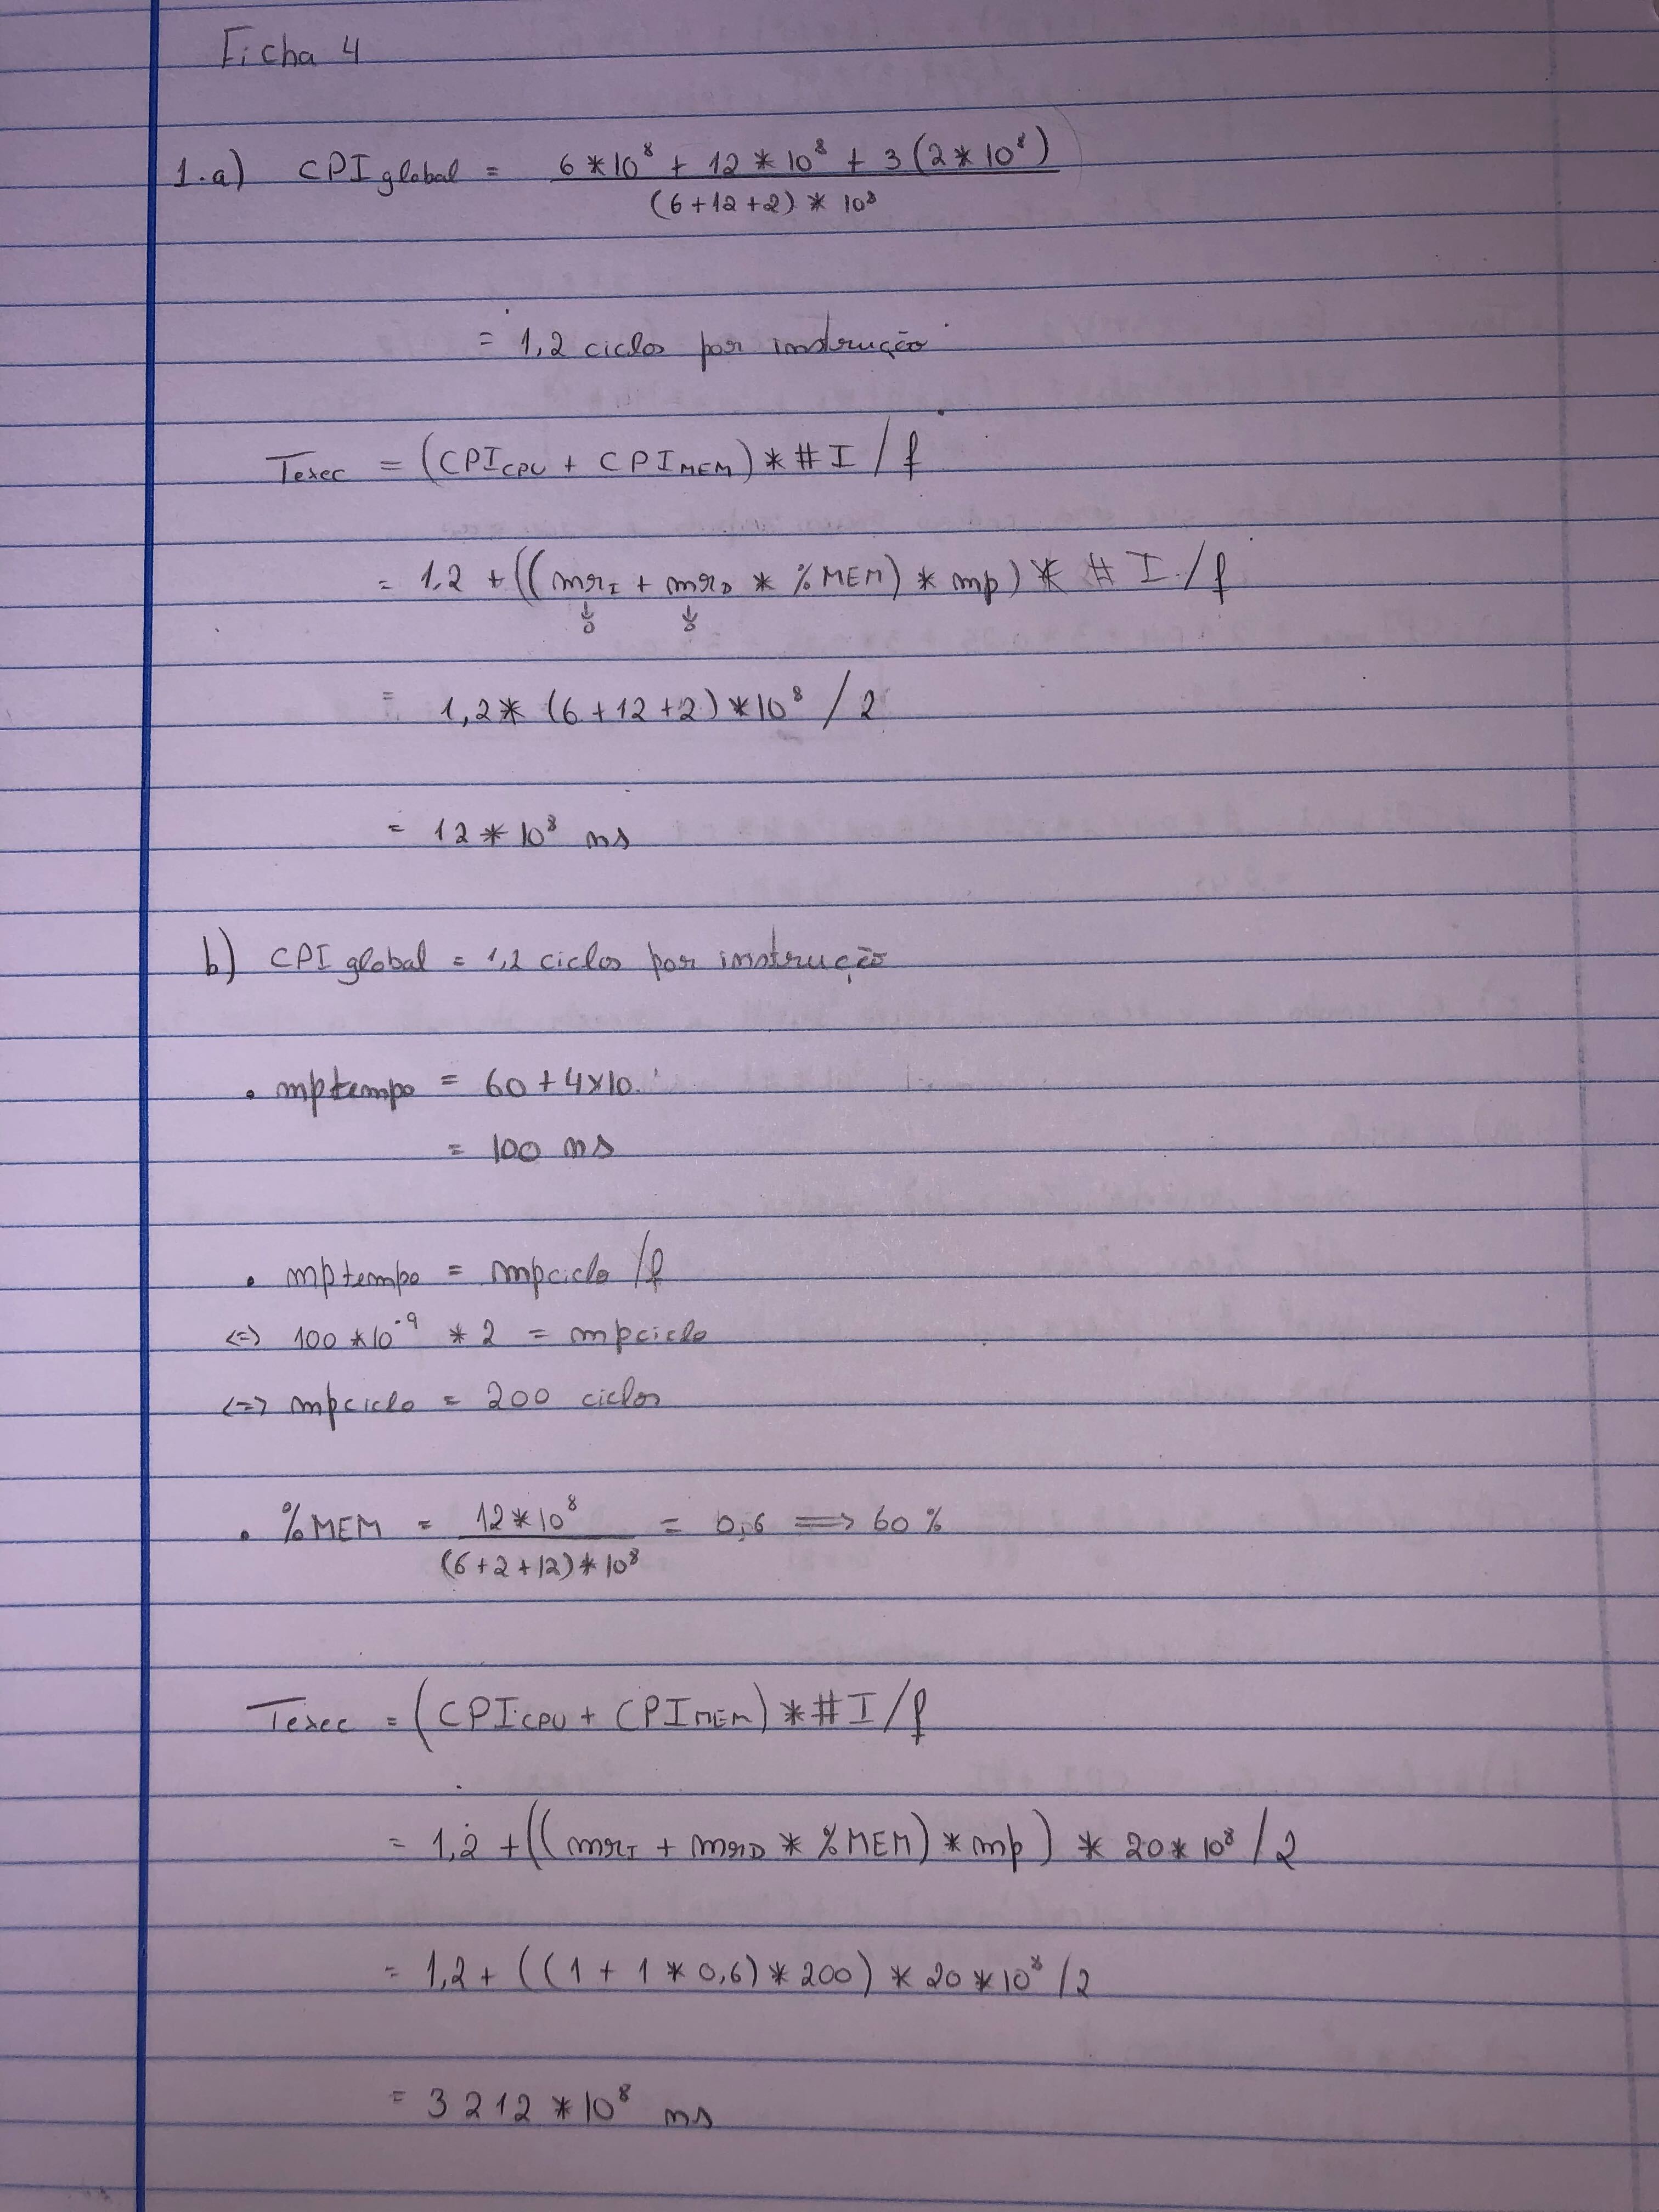 Ficha 4
1.a) CPI global = 6*10⁸ + 12*10⁸ + 3(2*10⁸)
(6+12+2) * 10⁸
= 1,2 ciclos por instrução
Texec = (CPI CPU + CPI MEM) * #I / f
= 1,2 + ((mrI + mrD * %MEM) * mp) * #I / f
↓ ↓
0 0
= 1,2* (6+12+2)*10⁸ / 2
= 12*10⁸ ns
b) CPI global = 1,2 ciclos por instrução
• mptempo = 60+4x10
= 100 ns
• mptempo = mpciclo / f
<=> 100*10⁻⁹ * 2 = mpciclo
<=> mpciclo = 200 ciclos
• %MEM = 12*10⁸ = 0,6 => 60%
(6+2+12)*10⁸
Texec = (CPI CPU + CPI MEM) * #I / f
= 1,2 + ((mrI + mrD * %MEM) * mp) * 20*10⁸ / 2
= 1,2 + ((1 + 1 * 0,6) * 200) * 20*10⁸ / 2
= 3212*10⁸ ns